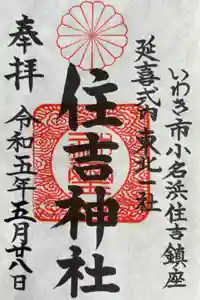 いわき市小名浜住吉鎮座
延喜式内東北一社
住吉神社
奉拝
令和五年五月廿八日